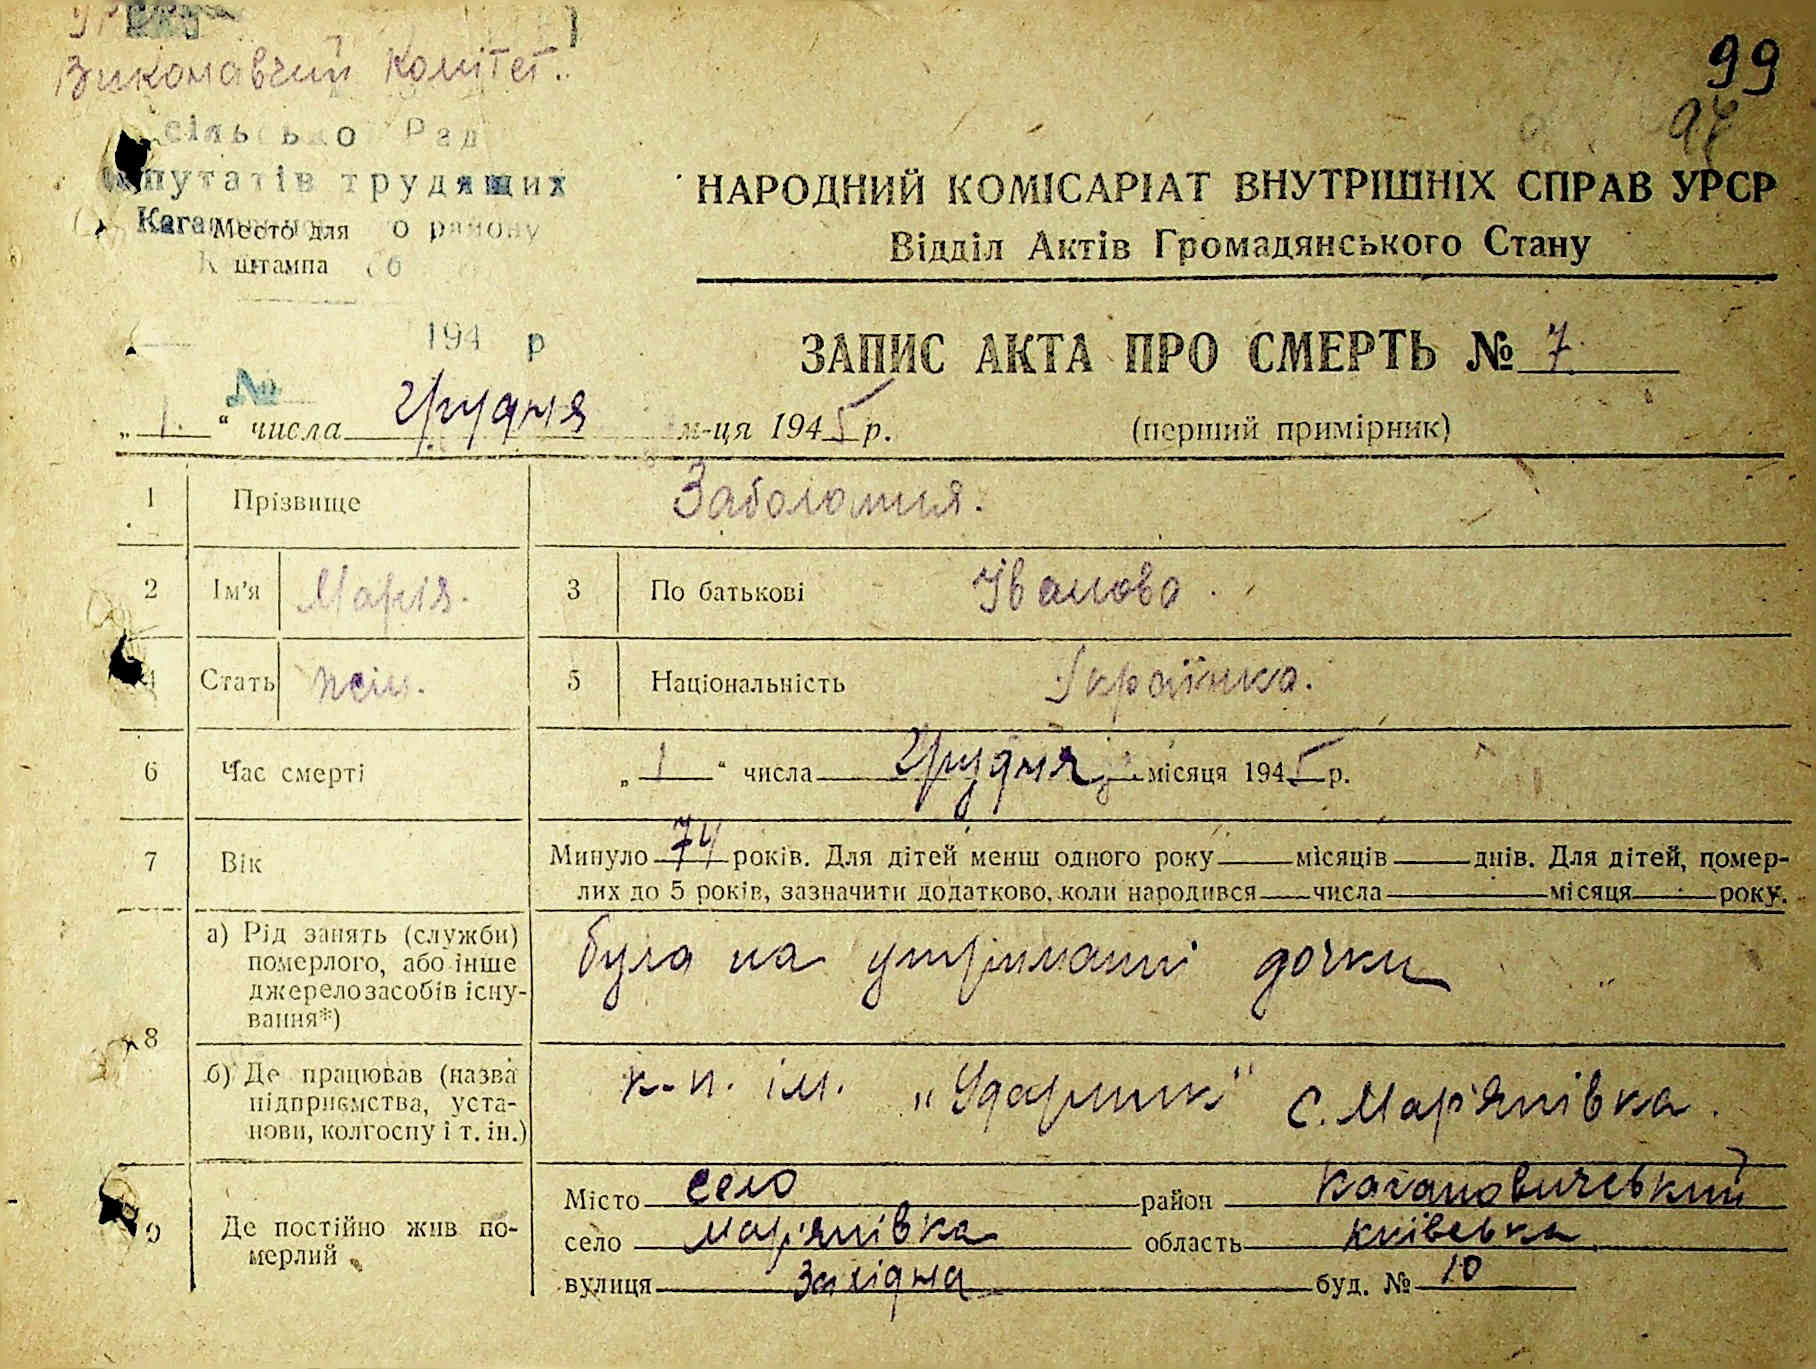 УРСР
Виконавчий комітет.
сільсько Рад
депутатів трудящих
Кага о району
Место для
штампа
194 р
№
99
97
НАРОДНИЙ КОМІСАРІАТ ВНУТРІШНІХ СПРАВ УРСР
Відділ Актів Громадянського Стану
ЗАПИС АКТА ПРО СМЕРТЬ № 7
„1." числа грудня м-ця 1945 р.
(перший примірник)
1 Прізвище Заболотня.
2 Ім'я Марія. 3 По батькові Іванова.
4 Стать жін. 5 Національність Українка.
6 Час смерті „1" числа грудня місяця 1945 р.
7 Вік Минуло 74 років. Для дітей менш одного року місяців днів. Для дітей, помер-
лих до 5 років, зазначити додатково, коли народився числа місяця року.
8 а) Рід занять (служби)
померлого, або інше
джерело засобів існу-
вання*)
була на утриманні дочки
б) Де працював (назва
підприємства, уста-
нови, колгоспу і т. ін.)
к-п. ім. „Ударник" с. Мар'янівка.
9 Де постійно жив по-
мерлий
Місто село район Кагановичський
село Мар'янівка область Київська
вулиця Західна буд. № 10